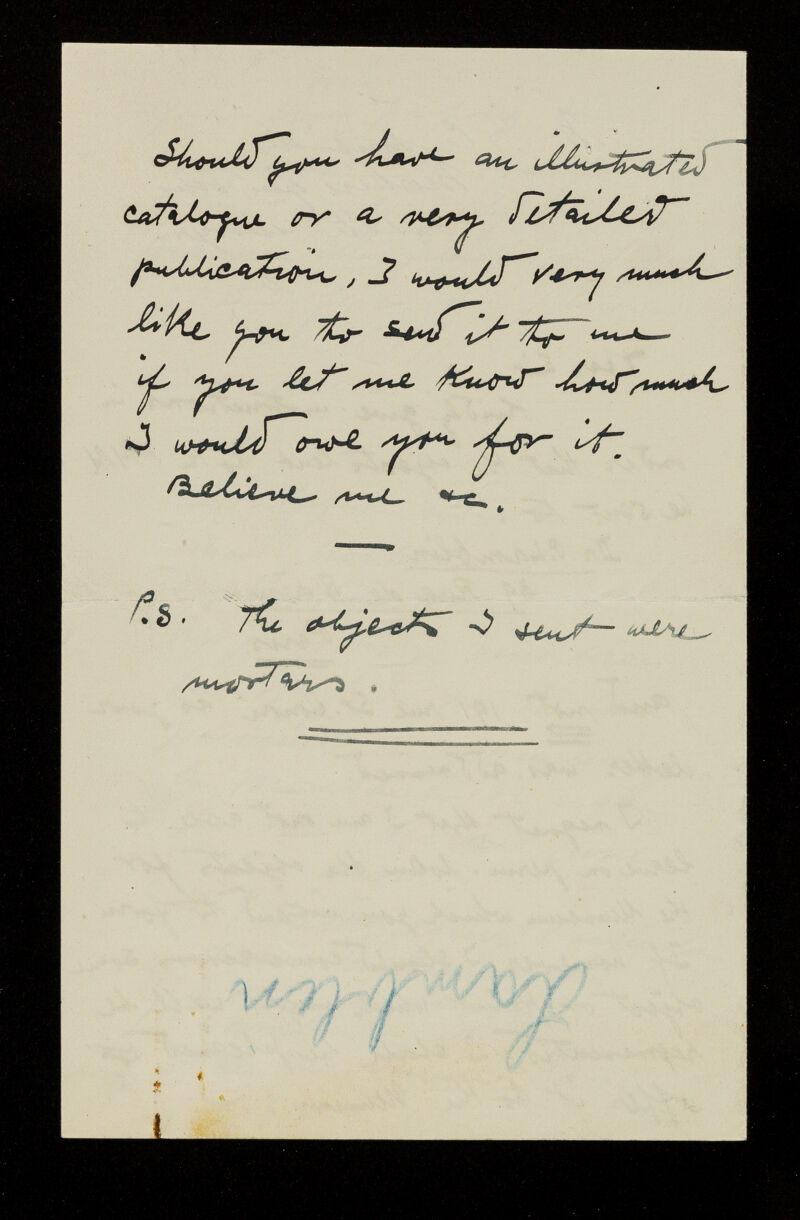 Should you have an illustrated
catalogue or a very detailed
publication, I would very much
like you to send it to me
if you let me know how much
I would owe you for it.
Believe me &c.
P.S. The objects I sent were
mortars.
Lamblen